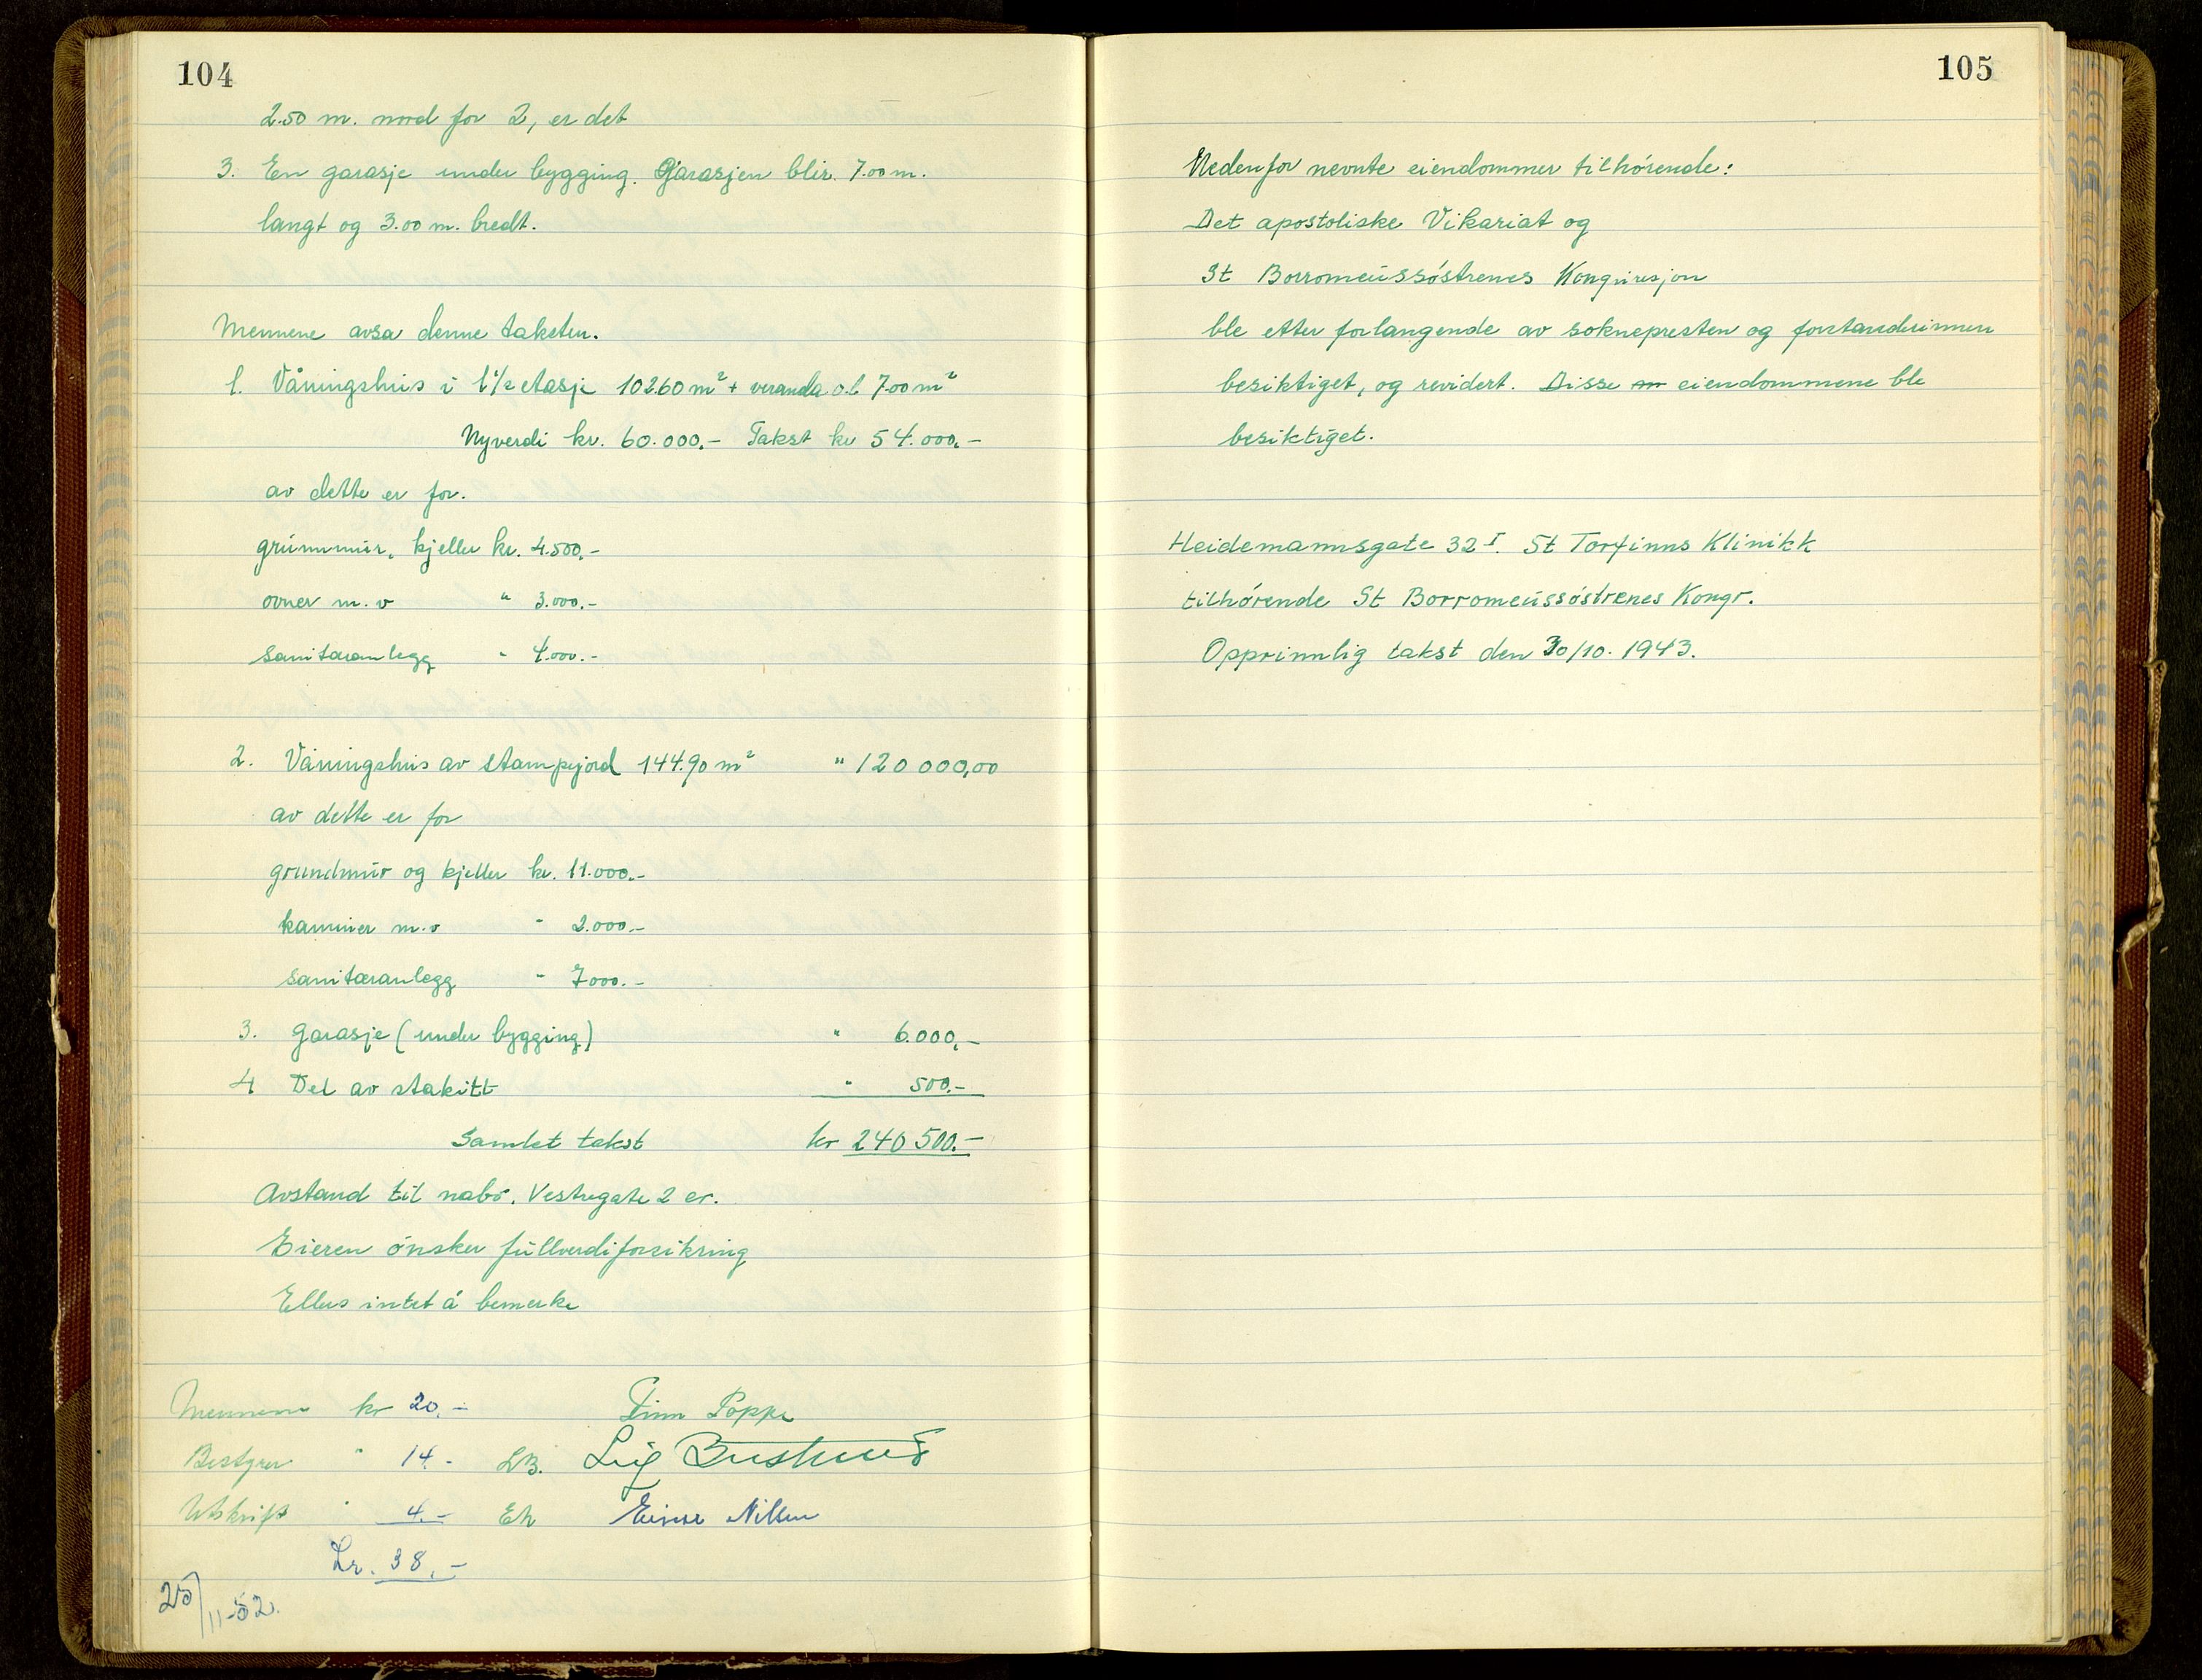 104
2.50 m. nord for 2, er det
3. En garasje under bygging. Garasjen blir. 7.00 m.
langt og 3.00 m. bredt.
Mennene avsa denne taksten.
1. Våningshus i 1½ etasje 102.60 m² + veranda o.l 7.00 m²
Nyverdi kr. 60.000,- Takst kr 54.000,-
av dette er for.
grunnmur, kjeller kr. 4.500,-
ovner m.v " 3.000.-
sanitæranlegg " 4.000.-
2. Våningshus av stampejord 144.90 m² " 120 000,00
av dette er for
grundmur og kjeller kr. 11.000.-
kaminer m.v " 2.000.-
sanitæranlegg " 7000.-
3. garasje (under bygging) " 6.000,-
4 Del av stakitt " 500.-
Samlet takst kr 240 500.-
Avstand til nabo. Vestregate 2 er.
Eieren ønsker fullverdiforsikring
Ellers intet å bemerke
Mennene kr 20,- Finn Poppe
Bestyrer " 14.- LB. Leif
Utskrift " 4.- EN Einar Nilsen
Kr. 38,-
25/11-52.
105
Nedenfor nevnte eiendommer tilhørende:
Det apostoliske Vikariat og
St Borromeussøstrenes Kongresjon
ble etter forlangende av soknepresten og forstanderinnen
besiktiget, og revidert. Disse eiendommene ble
besiktiget.
Heidemannsgate 32 I. St Torfinns Klinikk
tilhørende St Borromeussøstrenes Kongr.
Opprinnlig takst den 30/10. 1943.